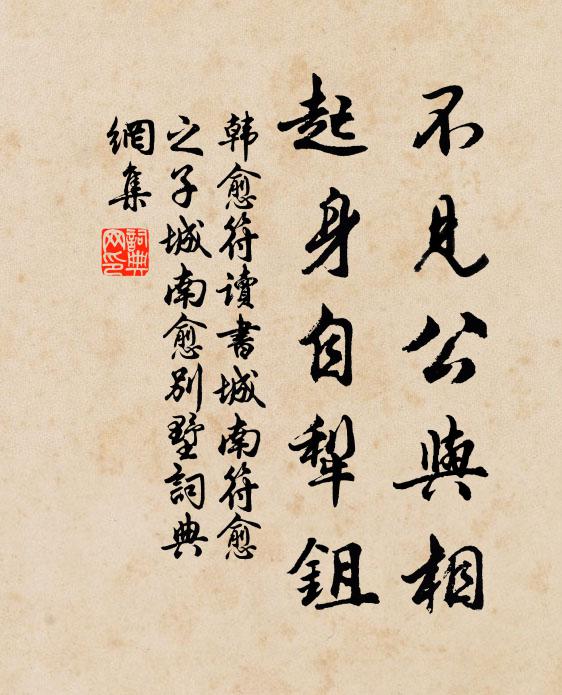 不見公與相
起身自犁鉏
韩愈符讀書城南符愈
之子城南愈别墅詞典
網集
詞典
网印